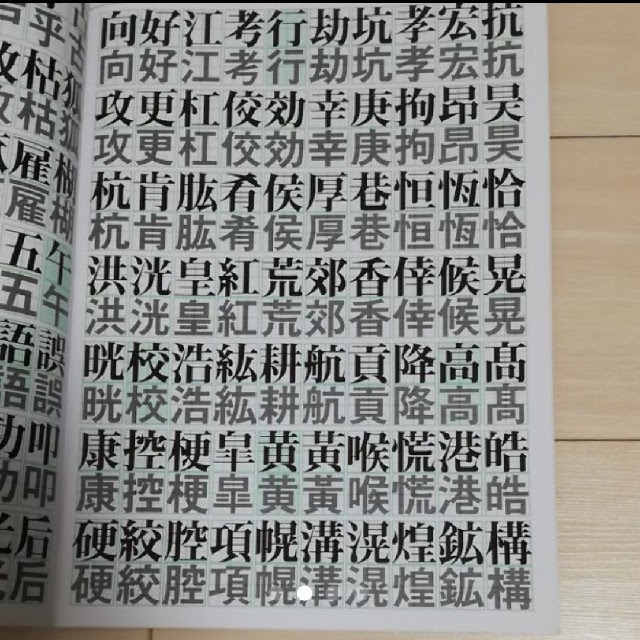 枯狐
枯狐
雇
雇
五午
五午
語誤
語誤
叩
叩
后
后
向好江考行劫坑孝宏抗
向好江考行劫坑孝宏抗
攻更杠佼効幸庚拘昂昊
攻更杠佼効幸庚拘昂昊
杭肯肱肴侯厚巷恒恆恰
杭肯肱肴侯厚巷恒恆恰
洪洸皇紅荒郊香倖候晃
洪洸皇紅荒郊香倖候晃
晄校浩紘耕航貢降高髙
晄校浩紘耕航貢降高髙
康控梗皐黄黃喉慌港皓
康控梗皐黄黃喉慌港皓
硬絞腔項幌溝滉煌鉱構
硬絞腔項幌溝滉煌鉱構